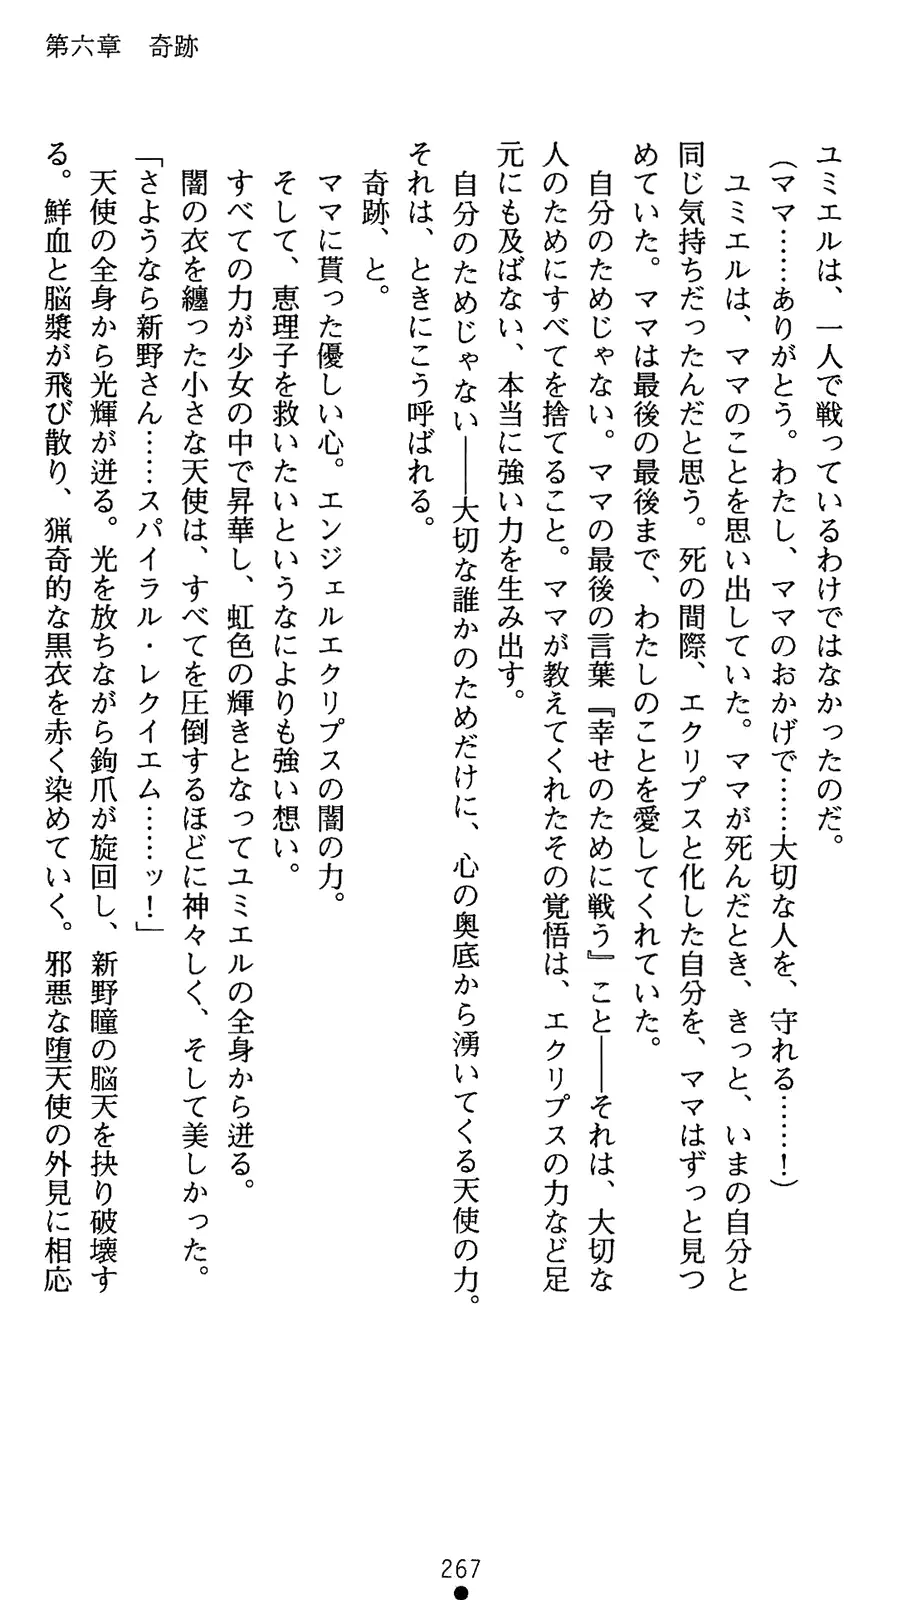 第六章　奇跡
ユミエルは、一人で戦っているわけではなかったのだ。
（ママ……ありがとう。わたし、ママのおかげで……大切な人を、守れる……！）
　ユミエルは、ママのことを思い出していた。ママが死んだとき、きっと、いまの自分と
同じ気持ちだったんだと思う。死の間際、エクリプスと化した自分を、ママはずっと見つ
めていた。ママは最後の最後まで、わたしのことを愛してくれていた。
　自分のためじゃない。ママの最後の言葉『幸せのために戦う』こと――それは、大切な
人のためにすべてを捨てること。ママが教えてくれたその覚悟は、エクリプスの力など足
元にも及ばない、本当に強い力を生み出す。
　自分のためじゃない――大切な誰かのためだけに、心の奥底から湧いてくる天使の力。
それは、ときにこう呼ばれる。
　奇跡、と。
　ママに貰った優しい心。エンジェルエクリプスの闇の力。
　そして、恵理子を救いたいというなによりも強い想い。
　すべての力が少女の中で昇華し、虹色の輝きとなってユミエルの全身から迸る。
　闇の衣を纏った小さな天使は、すべてを圧倒するほどに神々しく、そして美しかった。
「さようなら新野さん……スパイラル・レクイエム……ッ！」
　天使の全身から光輝が迸る。光を放ちながら鉤爪が旋回し、新野瞳の脳天を抉り破壊す
る。鮮血と脳漿が飛び散り、猟奇的な黒衣を赤く染めていく。邪悪な堕天使の外見に相応
267